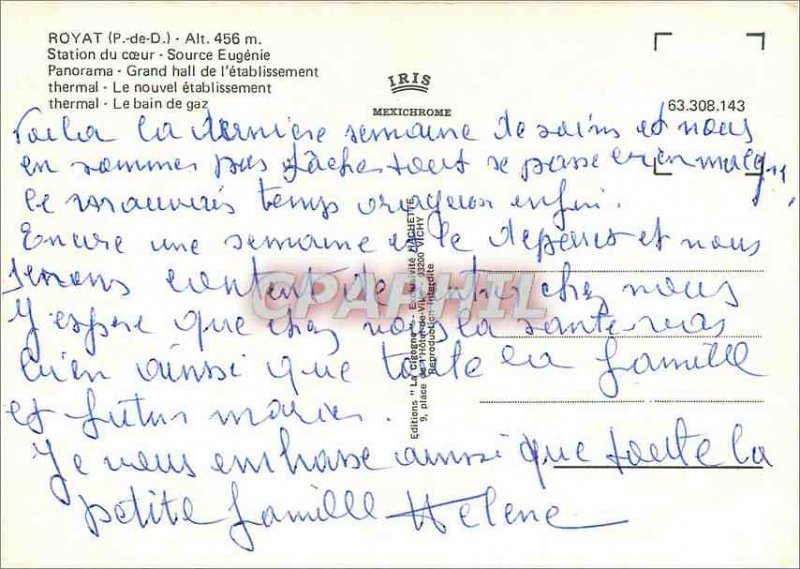 ROYAT (P.-de-D.) - Alt. 456 m.
Station du cœur - Source Eugénie
Panorama - Grand hall de l'établissement
thermal - Le nouvel établissement
thermal - Le bain de gaz
IRIS
MEXICHROME
63.308.143
Voila la dernière semaine de soins et nous
en sommes pas fâches tout se passe bien malg
le mauvais temps orageux enfin.
Encore une semaine et le depart et nous
serons content de rentrer chez nous
J'espere que chez vous la sante vas
bien ainsi que toute la famille
et futur maries.
Je vous embrasse ainsi que toute la
petite famille Helene
Editions "La Cigogne" - Exclusivité HACHETTE
9, place de l'Hôtel-de-Ville 03200 VICHY
Reproduction interdite
CPAPHIL